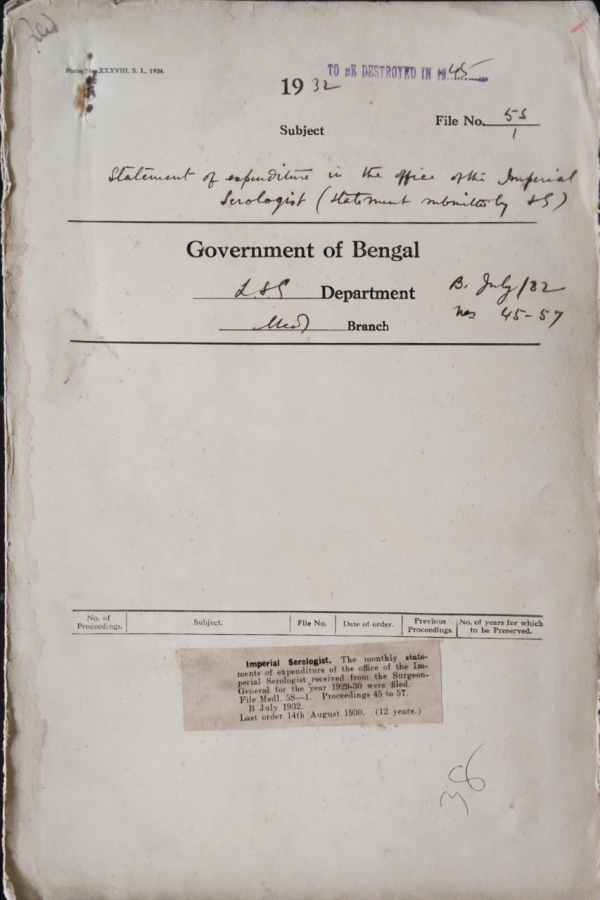 Form No. XXXVIII, S. I., 1924.
TO BE DESTROYED IN 1945
1932
File No. 5S/1
Subject
Statement of expenditure in the office of the Imperial
Serologist (Statement submitted by SG)
Government of Bengal
LSG Department
B. July/32
Medl Branch
nos 45-57
No. of Proceedings. Subject. File No. Date of order. Previous Proceedings. No. of years for which to be Preserved.
Imperial Serologist. The monthly state-
ments of expenditure of the office of the Im-
perial Serologist received from the Surgeon-
General for the year 1929-30 were filed.
File Medl. 5S—1. Proceedings 45 to 57.
B July 1932.
Last order 14th August 1930. (12 years.)